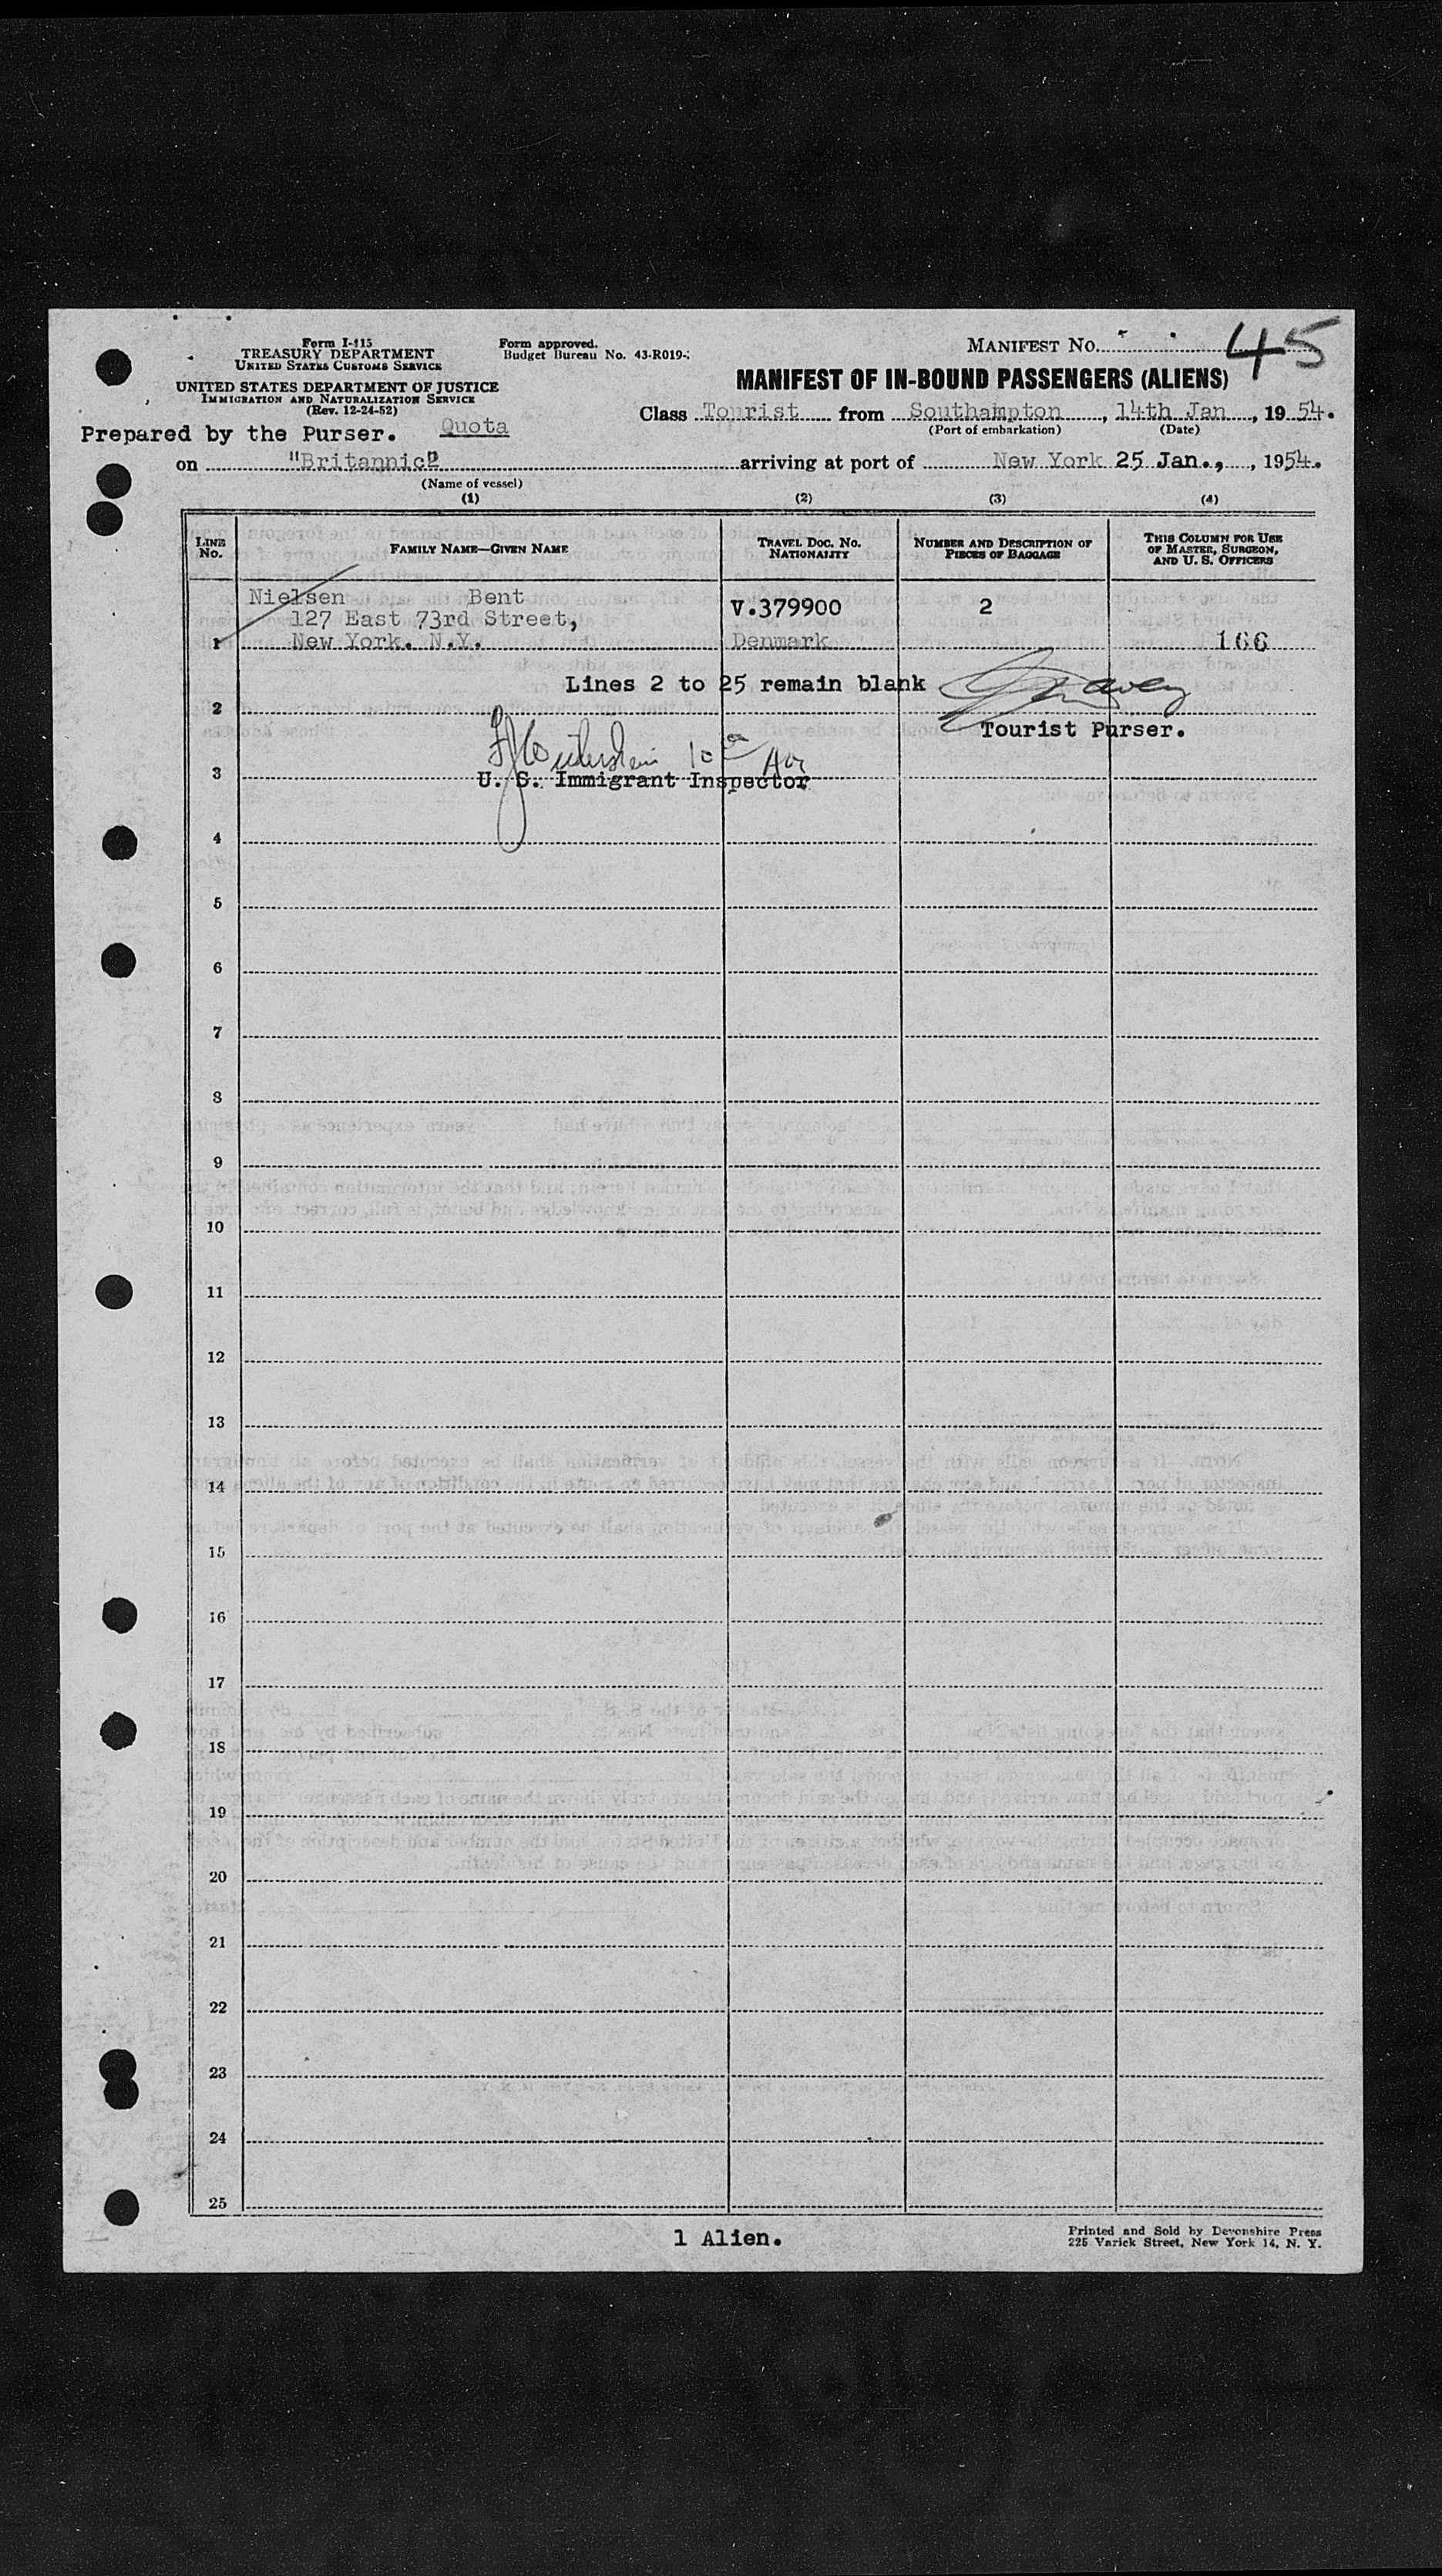 Form I-415
TREASURY DEPARTMENT
UNITED STATES CUSTOMS SERVICE
UNITED STATES DEPARTMENT OF JUSTICE
IMMIGRATION AND NATURALIZATION SERVICE
(Rev. 12-24-52)
Form approved.
Budget Bureau No. 43-R019-
MANIFEST No. 45
MANIFEST OF IN-BOUND PASSENGERS (ALIENS)
Class Tourist from Southampton, 14th Jan, 19 54.
(Port of embarkation) (Date)
Prepared by the Purser. Quota
on "Britannic" arriving at port of New York 25 Jan., 1954.
(Name of vessel)
(1) (2) (3) (4)
LINE No. FAMILY NAME—GIVEN NAME TRAVEL DOC. NO. NATIONALITY NUMBER AND DESCRIPTION OF PIECES OF BAGGAGE THIS COLUMN FOR USE OF MASTER, SURGEON, AND U. S. OFFICERS
Nielsen Bent
127 East 73rd Street, V.379900 2
1 New York. N.Y. Denmark 166
Lines 2 to 25 remain blank
2
Tourist Purser.
3 U. S. Immigrant Inspector
4
5
6
7
8
9
10
11
12
13
14
15
16
17
18
19
20
21
22
23
24
25
1 Alien.
Printed and Sold by Devonshire Press
225 Varick Street, New York 14, N. Y.